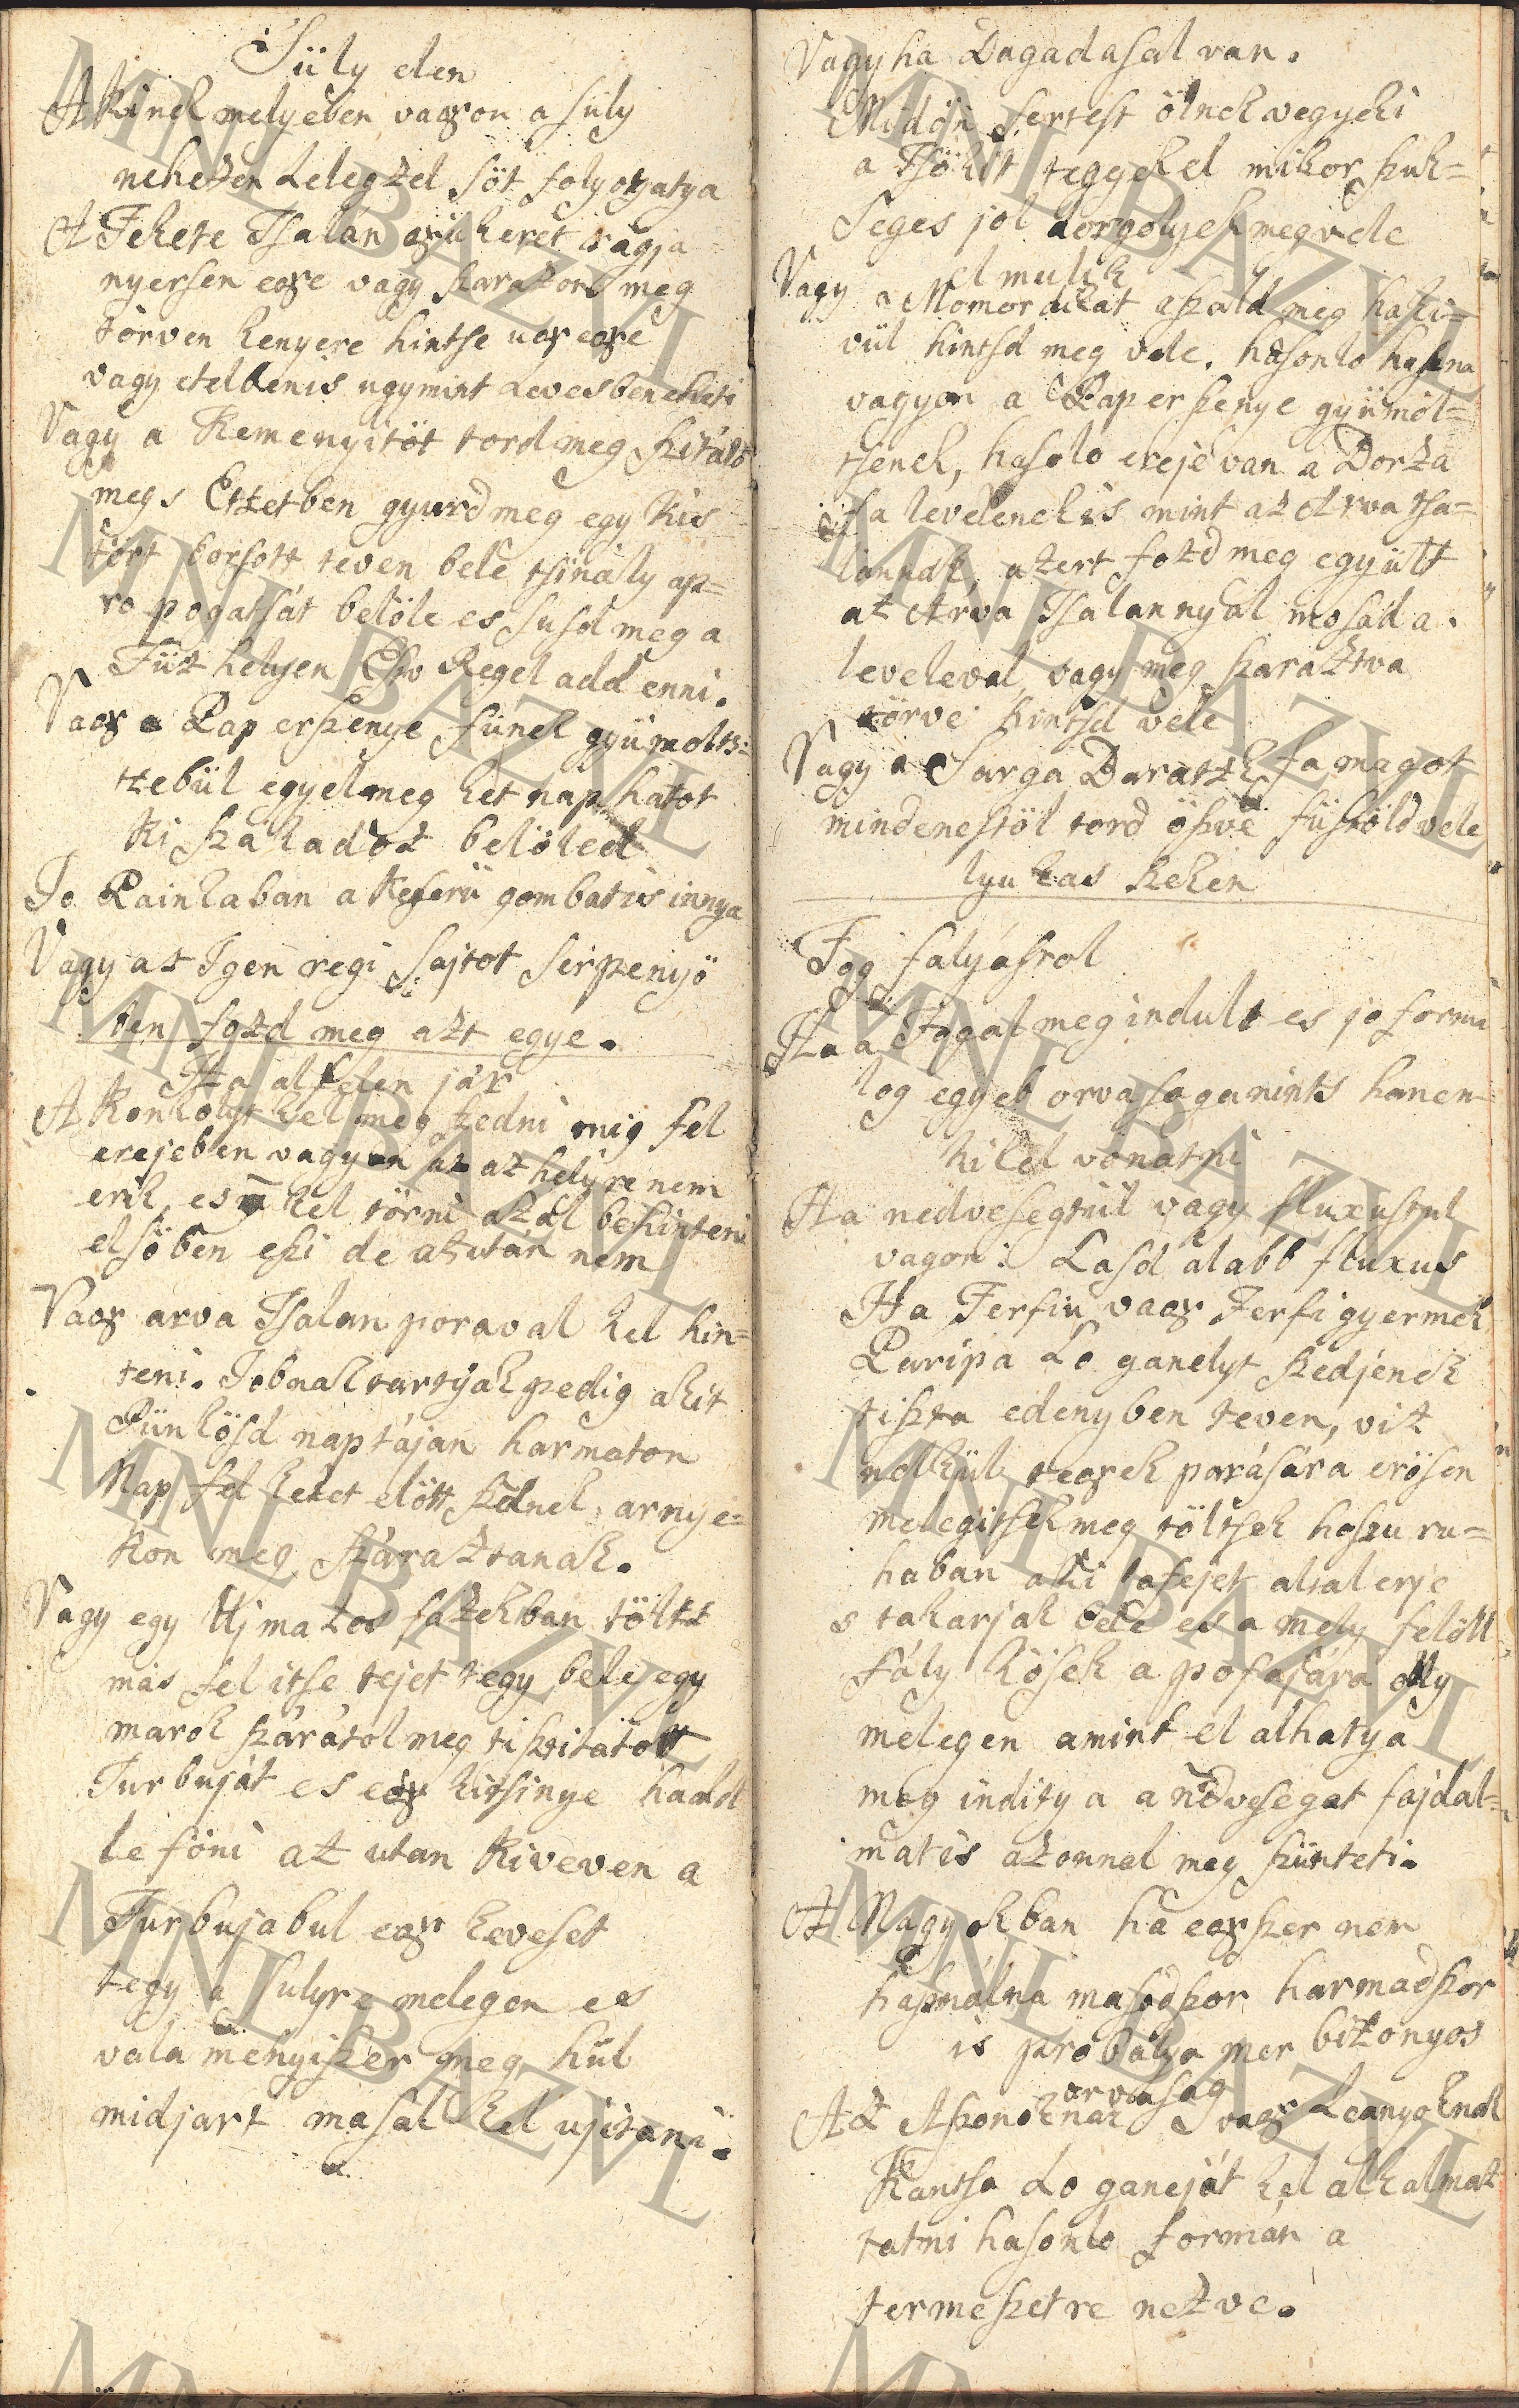 Süly ellen
A kinek melyében vagyon a süly
nehezen Lelegzel söt folyotzatya
A Fekete Tsalan gyükeret ragja
nyersen egye vagy szarazon meg
törven kenyere hintse ugy egye
vagy etelbenis ugymint Levesben eheti
Vagy a Kemenyitöt tord meg szitáld
meg s Etzetben gyurd meg egy kis
tört borsott teven bele tsinály ap=
ro pogatsát belöle es susd meg a
Tüz helyen Eho Regel add enni.
Vagy a Pap erszenye fünek gyümolts=
tzebül egyel meg het nap hatot
Ki szakadoz belöled
Jo Painkaban a keserü gombatis innya
Vagy az Igen regi sajtot serpenyö
ben fozd meg azt egye.
Ha alfelen jár
A Konkolyt kel meg szedni mig fel
erejeben vagyon az az hely re nem
erik, es kel törni azal behinteni
elsöben eszi de azután nem
Vagy arva Tsalan poraval kel hin=
teni. Jobnak tartyák pedig akit
Pünkösd nap táján harmaton
Nap fel kelet elött szednek, arnye=
kon meg száraztanak.
Vagy egy Uj mazos fazekban tölts
más fel itse tejet tegy bele egy
marok szárátol meg tisztitatott
Turbuját es egy kitsinye hadd
le föni az utan Kiveven a
Turbujabul egy keveset
tegy a sulyre melegen es
vala menyiszer meg hül
midjart masal kel ujitani.
Vagy ha Dagadasal van.
Midön sertest ölnek vegyeki
a Tsökit tegyek el mikor szük=
seges jol dorgölyek meg vele
el mulik
Vagy a Momordicat aszald meg ha ki=
vül hintsd meg vele. hasonlo haszna
vagyon a Pap erszenye gyümöl=
tsenek, hasolo ereje van a Borza
fa levelenek is mint az Arva tsa=
lannak, azert fozd meg együtt
az Arva Tsalannyal mosad a.
levelevel, vagy meg szaraztva
törve hintsd vele
Vagy a Sarga Daratzk fa magot
mindenestöl tord öszve füstöld vele
lyukas széken
Fog falyásrol
Ha a Fogal meg indult es jo formá
log egyeb orvasaga nints hanem
ki kel vonatni
Ha nedvesegtül vagy fluxustul
vagon: Lasd alabb fluxus
Ha Ferfiu vagy Ferfi gyermek
Paripa Lo ganelyt szedjenek
tiszta edenyben teven, viz
nelkül, tegyek parására erösen
melegitsek meg töltsek hoszu ru=
haban a ki lafejet altal erje
s takarjak bele es a mely felöll
fály kösek a pofajára olly
melegen amint el alhatya
meg inditya a nedveseget fajdal=
matis azonnal meg szünteti.
A Nagyokban ha egyszer nem
hasznalna masodszor harmadszor
is probalya mer bizonyos
orvasag
Az Aszonoknak vagy Leanyoknak
Kantsa Lo ganeját kel alkalmaz
tatni hasonlo formán a
termeszetre nezve.